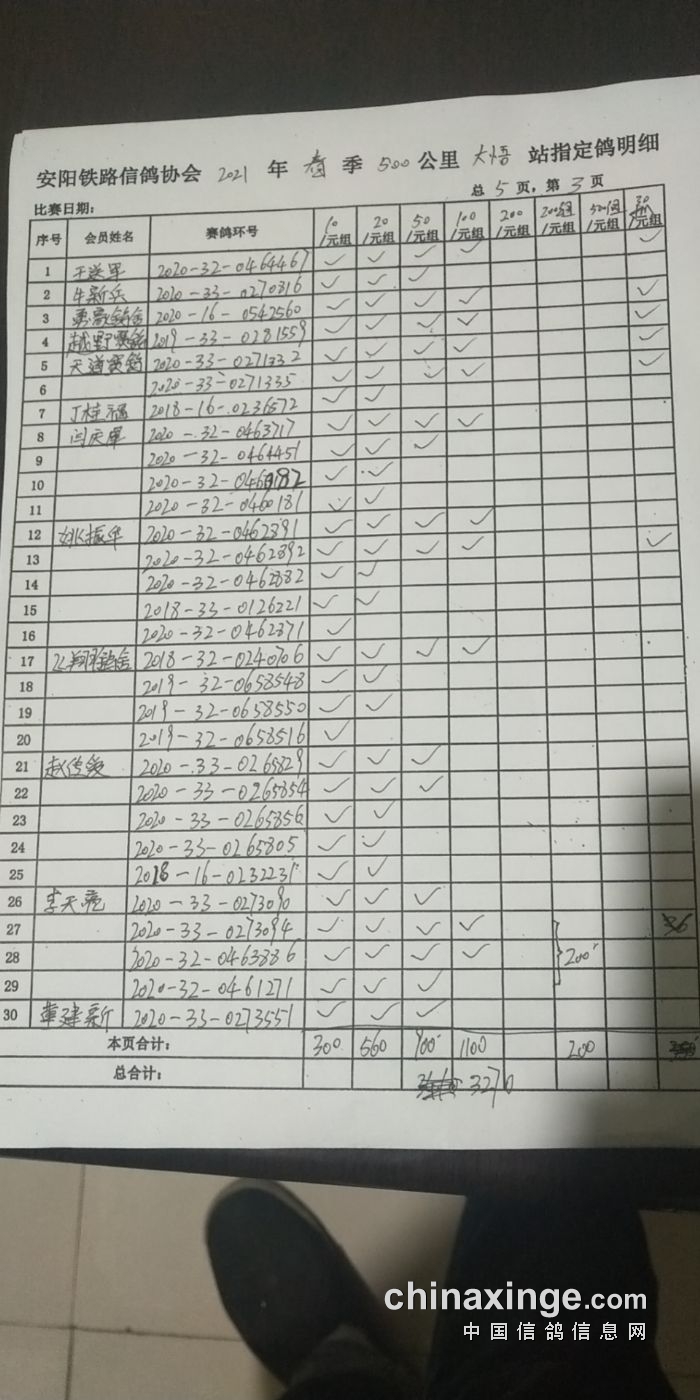 安阳铁路信鸽协会 2021 年 春 季 500 公里 大悟 站指定鸽明细
比赛日期： 总 5 页，第 3 页
序号 会员姓名 赛鸽环号 10/元组 20/元组 50/元组 100/元组 200/元组 /元组 /元组 30/元组
1 2020-32-0464467 ✓ ✓ ✓ ✓ ✓
2 牛新兵 2020-33-0270316 ✓ ✓ ✓
3 2020-16-0542560 ✓ ✓ ✓ ✓ ✓
4 越野赛鸽 2019-33-0281559 ✓ ✓ ✓ ✓ ✓
5 天道赛鸽 2020-33-0271332 ✓ ✓ ✓ ✓ ✓
6 2020-33-0271335 ✓ ✓ ✓ ✓ ✓
7 丁桂福 2018-16-0236572 ✓ ✓
8 闫庆犀 2020-32-0463717 ✓ ✓ ✓ ✓
9 2020-32-0464451 ✓ ✓ ✓
10 2020-32-0460182 ✓ ✓
11 2020-32-0460181 ✓ ✓
12 姚振华 2020-32-0462391 ✓ ✓ ✓ ✓
13 2020-32-0462392 ✓ ✓ ✓ ✓ ✓
14 2020-32-0462382 ✓ ✓
15 2018-33-0126221 ✓ ✓
16 2020-32-0462371 ✓
17 飞翔鸽舍 2018-32-0240706 ✓ ✓ ✓ ✓
18 2019-32-0658548 ✓ ✓
19 2019-32-0658550 ✓ ✓
20 2019-32-0658516 ✓
21 2020-33-0265829 ✓ ✓ ✓
22 2020-33-0265854 ✓ ✓ ✓
23 2020-33-0265856 ✓ ✓
24 2020-33-0265805 ✓ ✓
25 2018-16-0232231 ✓ ✓
26 李天亮 2020-33-0273090 ✓ ✓ ✓
27 2020-33-0273094 ✓ ✓ ✓ ✓
28 2020-32-0463886 ✓ ✓ ✓ ✓ 200
29 2020-32-0461271 ✓ ✓ ✓
30 2020-33-0273551 ✓ ✓ ✓
本页合计： 300 560 900 1100 200
总合计： 3270
chinaxinge.com
中国信鸽信息网